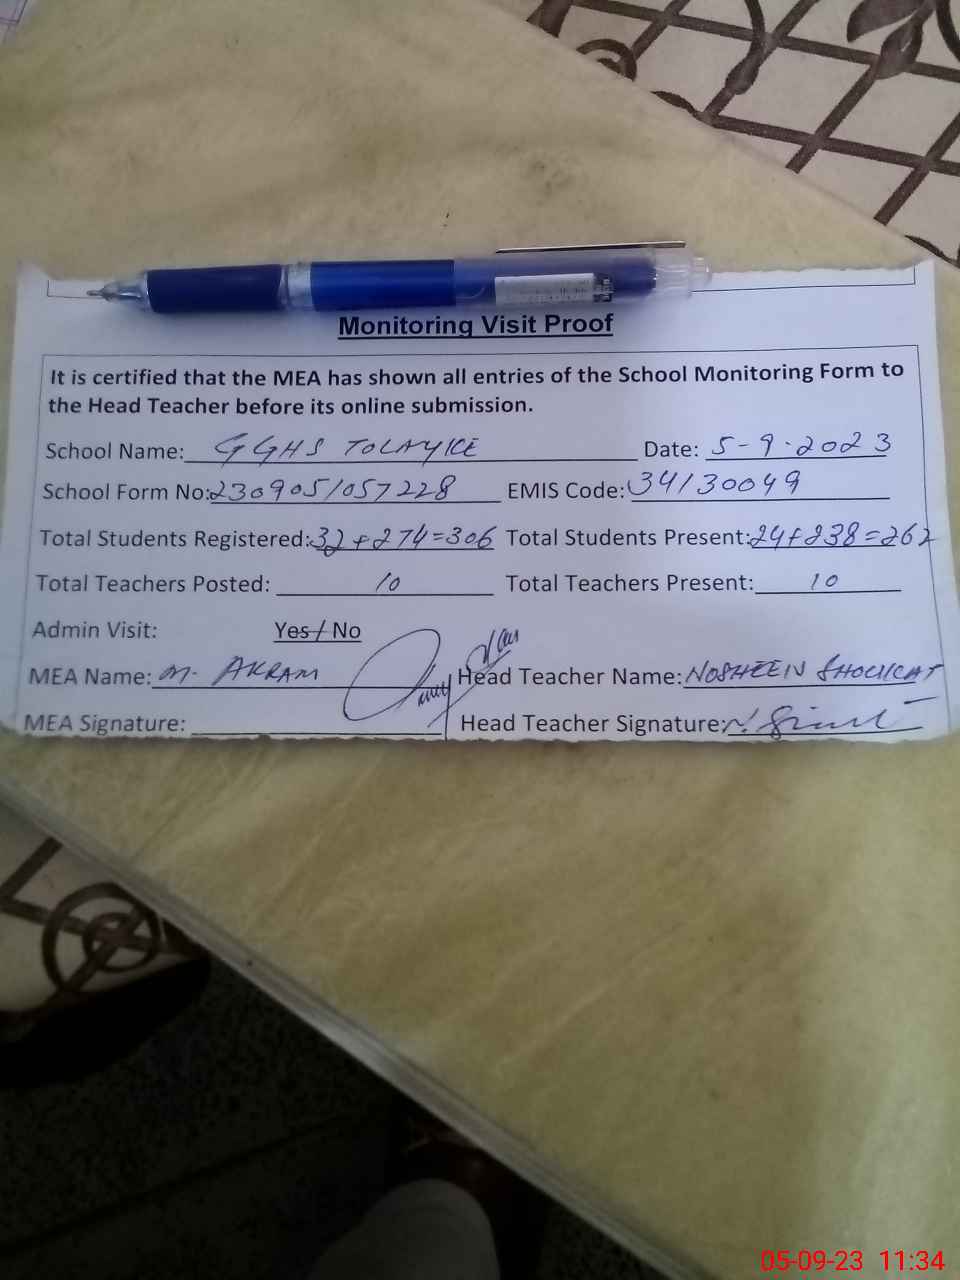 Monitoring Visit Proof
It is certified that the MEA has shown all entries of the School Monitoring Form to
the Head Teacher before its online submission.
School Name: GGHS TOLAYKE Date: 5-9-2023
School Form No: 230905/057228 EMIS Code: 34130049
Total Students Registered: 32+274=306 Total Students Present: 24+238=262
Total Teachers Posted: 10 Total Teachers Present: 10
Admin Visit: Yes / No
MEA Name: M. AKRAM Head Teacher Name: NOSHEEN SHOUKAT
MEA Signature: Head Teacher Signature:
05-09-23 11:34